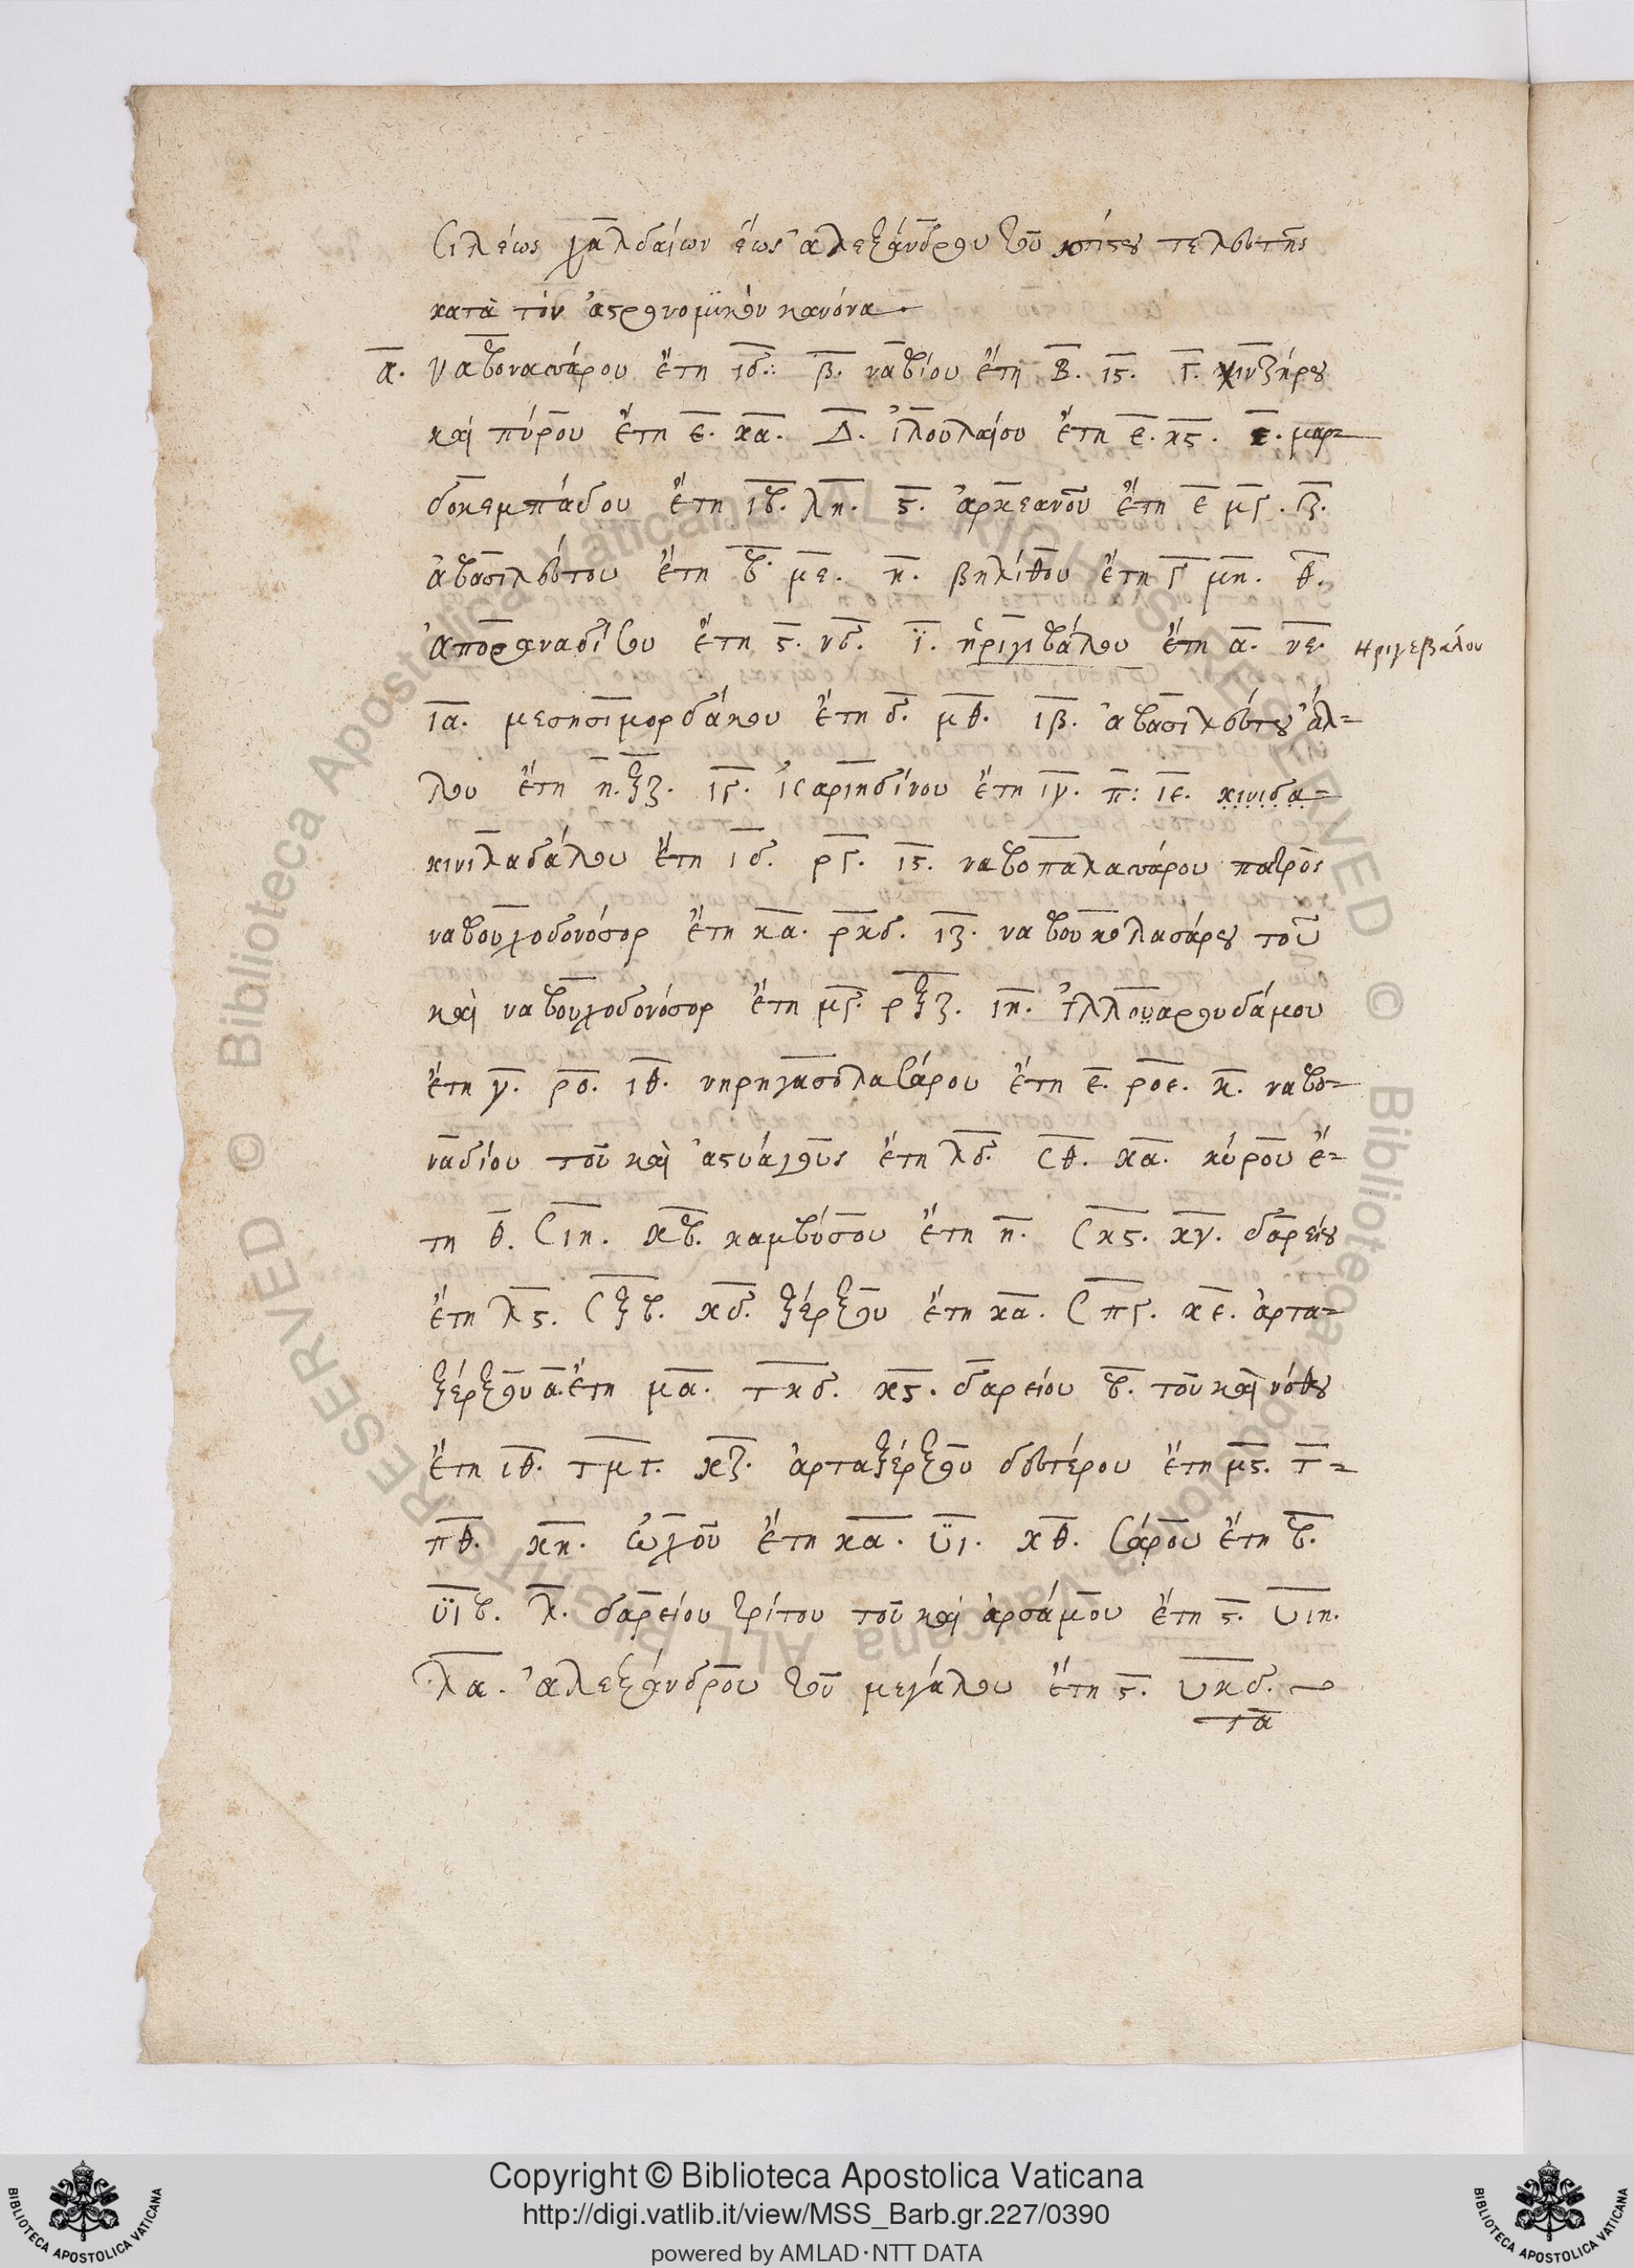 σιλέως χαλδαίων ἕως ἀλεξάνδρου τοῦ κτίστου τελευτῆς
κατὰ τὸν ἀστρονομικὸν κανόνα.
α. Ναβονασάρου ἔτη ιδ. β. ναβίου ἔτη β. ις. γ. χινζήρου
καὶ πύρου ἔτη ε. κα. Δ. ἰλουλαίου ἔτη ε. κς. ε. μαρ-
δοκεμπάδου ἔτη ιβ. λη. ς. ἀρκεανοῦ ἔτη ε μγ. ζ.
ἀβασιλεύτου ἔτη β με. η. βηλίθου ἔτη γ μη. θ.
ἀποραναδίσου ἔτη ς. νδ. ϊ. ἠριγιβάλου ἔτη α. νε. Ηριγεβάλου
ια. μεσησιμορδάκου ἔτη δ. μθ. ιβ. ἀβασιλεύτου ἄλ-
λου ἔτη η. ξζ. ιγ. ἰσαρινδίνου ἔτη ιγ. π: ιε. κινιδα-
κινιλαδάλου ἔτη ιδ. ργ. ις. ναβοπαλασάρου πατρὸς
ναβουχοδονόσορ ἔτη κα. ρκδ. ιζ. ναβουκολασάρου τοῦ
καὶ ναβουχοδονόσορ ἔτη μγ. ρξζ. ιη. ἰλλουαρουδάμου
ἔτη γ. ρο. ιθ. νηρηγασολασάρου ἔτη ε. ροε. κ. ναβο-
ναδίου τοῦ καὶ ἀστυάγους ἔτη λδ. σθ. κα. κύρου ἔ-
τη θ. σιη. κβ. καμβύσου ἔτη η. σκς. κγ. δαρείου
ἔτη λς. σξβ. κδ. ξέρξου ἔτη κα. σπγ. κε. ἀρτα-
ξέρξου α. ἔτη μα. τκδ. κς. δαρείου β. τοῦ καὶ νόθου
ἔτη ιθ. τμγ. κζ. ἀρταξέρξου δευτέρου ἔτη μς. τ-
πθ. κη. ὤχου ἔτη κα. ϋι. κθ. σάρου ἔτη β.
ϋιβ. λ. δαρείου τρίτου τοῦ καὶ ἀρσάμου ἔτη ς. υιη.
λα. ἀλεξάνδρου τοῦ μεγάλου ἔτη ς. υκδ.
τὰ
Copyright © Biblioteca Apostolica Vaticana
http://digi.vatlib.it/view/MSS_Barb.gr.227/0390
powered by AMLAD·NTT DATA
BIBLIOTECA APOSTOLICA VATICANA
BIBLIOTECA APOSTOLICA VATICANA
© Biblioteca Apostolica Vaticana ALL RIGHTS RESERVED
© Biblioteca Apostolica Vaticana ALL RIGHTS RESERVED